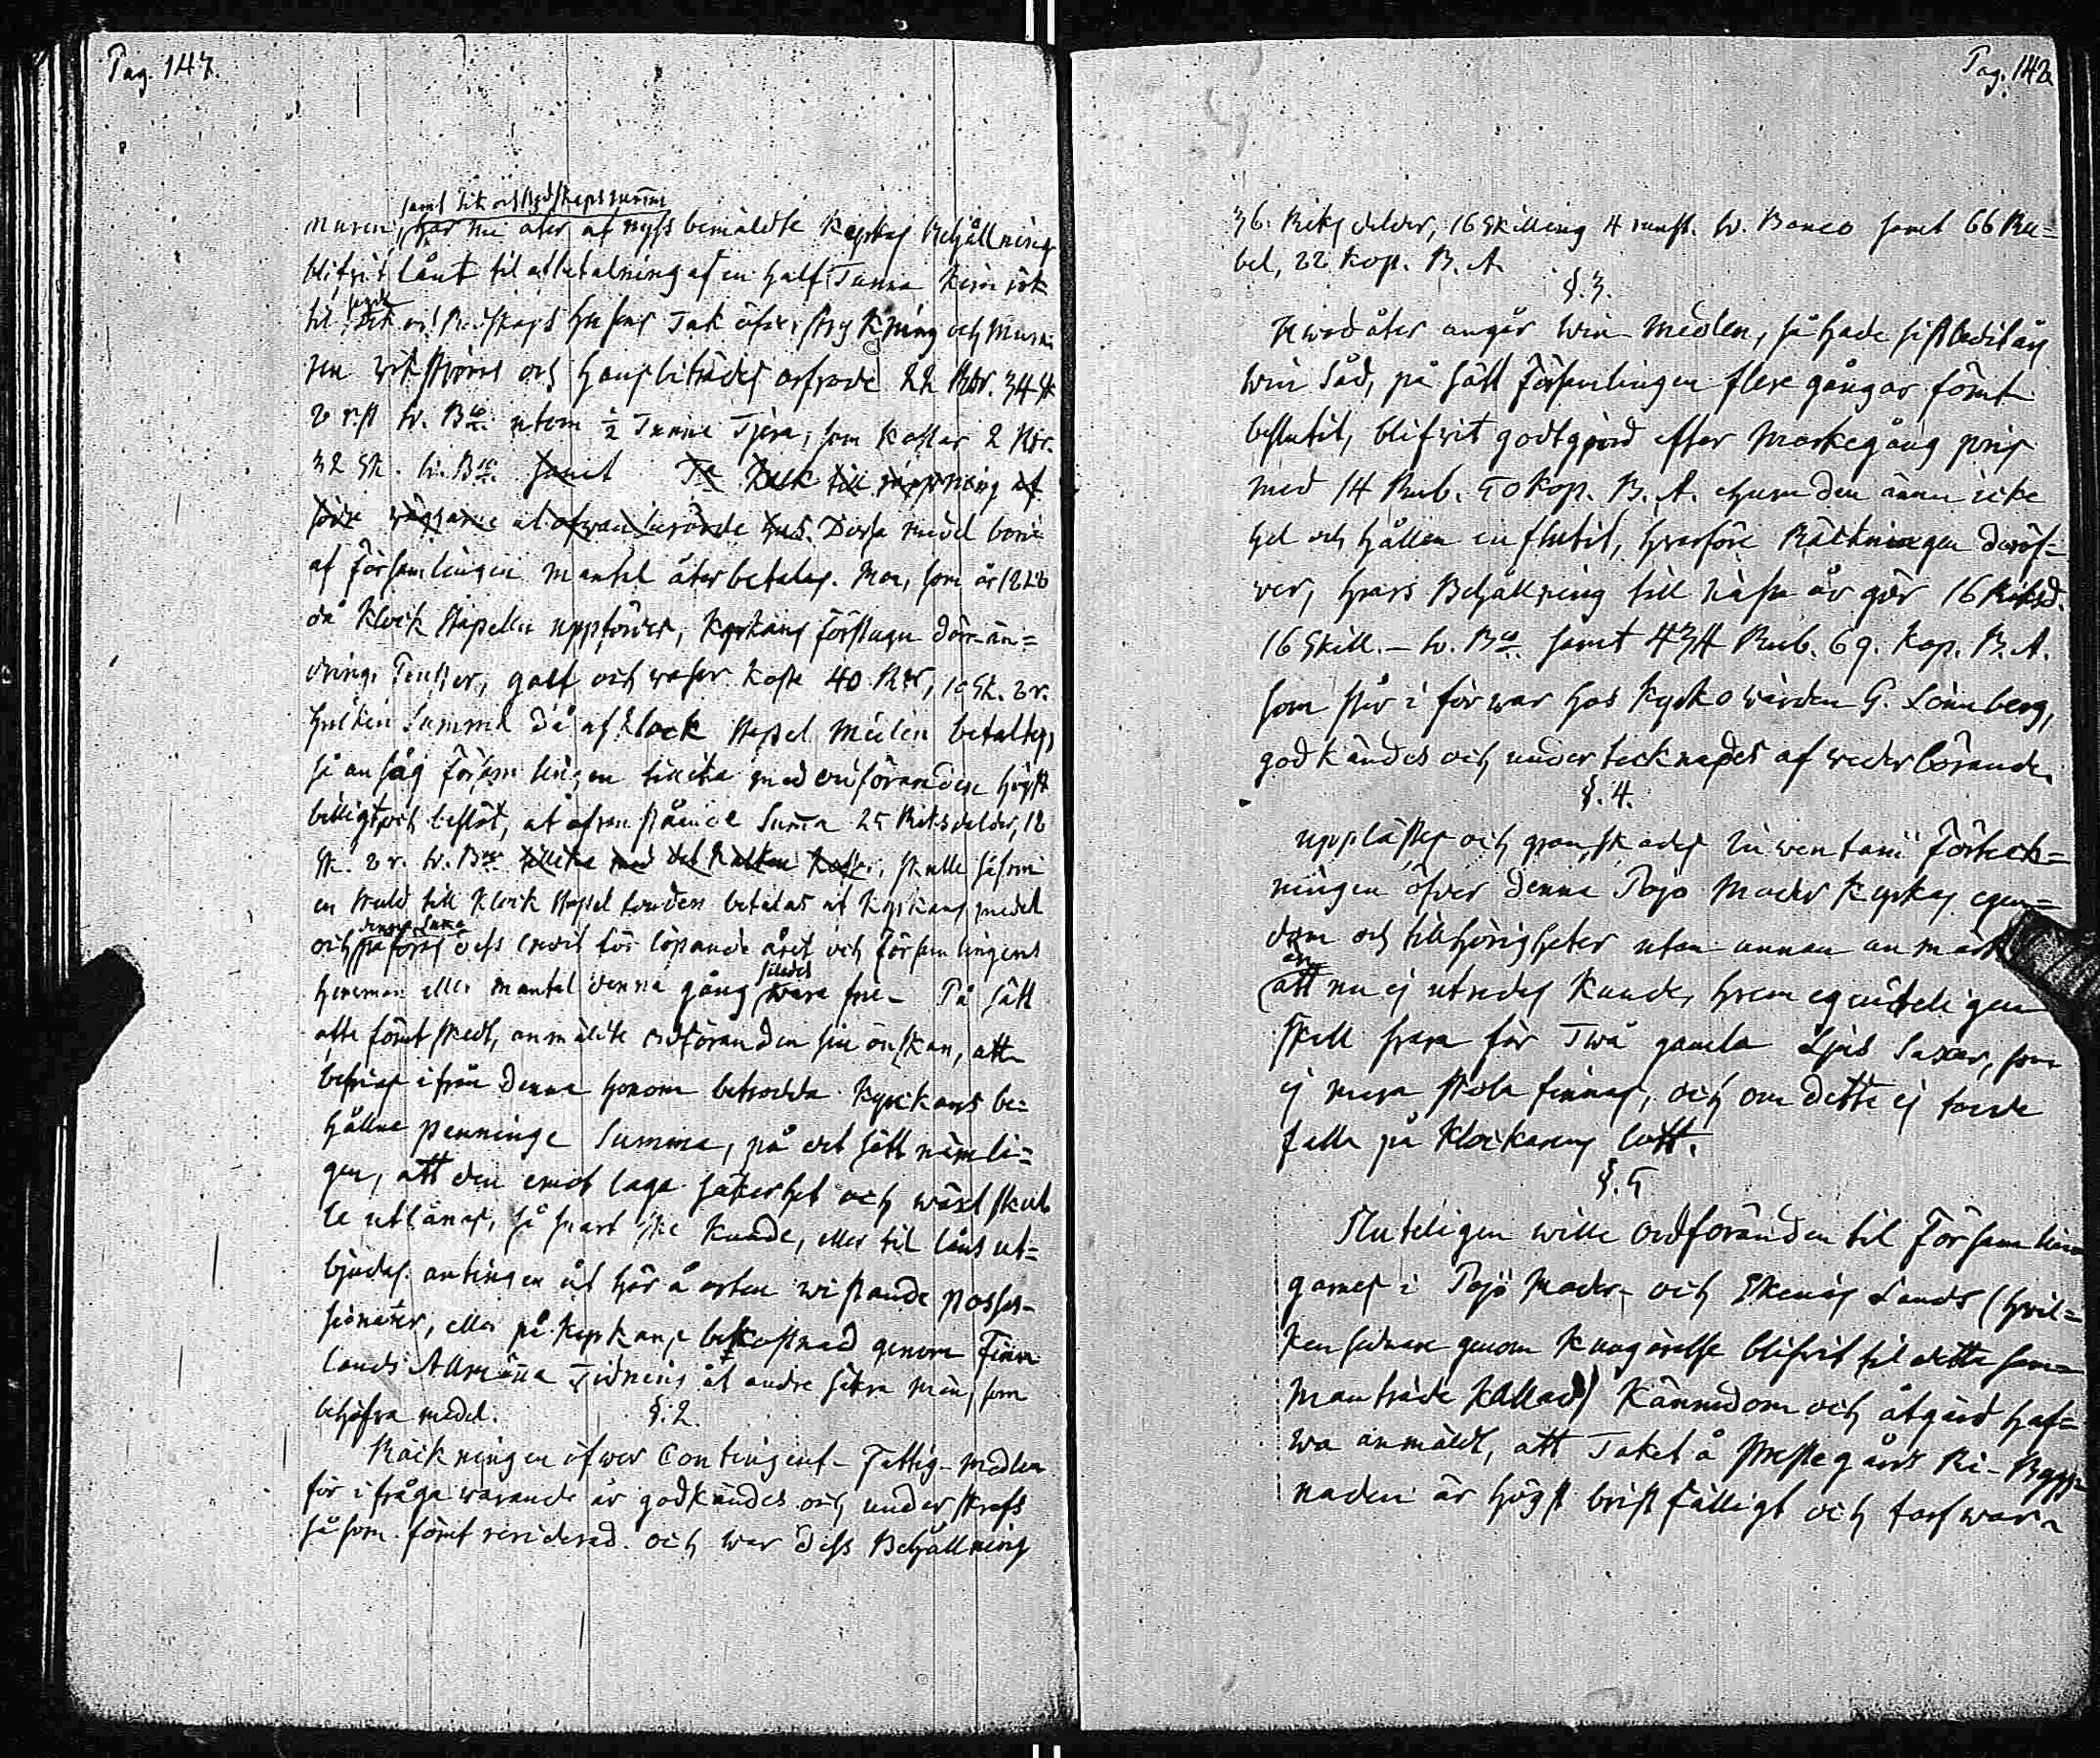 Pag. 147.
samt Lik och Redskaps
muren, har nu åter af nyss bemäldte Kyrkas Behållning
blifvit lånt til utbetalning af en half Tunna Kimrök
til Lik och Redskaps husens Tak öfverstrykning och Mura-
ren och hans biträdes arfvode 22 Rdr. 34 sk
2 r.st Sv. Bco. utom ½ Tunna Tjära, som kostar 2 Rdr.
32 Sk. Sv. Bco. samt Kalk till rappning af
wäggarne at ofwan berörde hus. Dessa medel borde
af Församlingen mantal återbetalas. Men, som år 1826
då Klock Stapeln uppfördes, Kyrkans Förstugu dörr än-
dring, Fenster, golf och kosta 40 Rdr, 10 Sk. 2 r.
hvilken Summa då af Klock Stapel Medlen betaltes,
så ansåg Församlingen tillika med Ordföranden högst
billigt och beslöt, at ofvanstående Summa 25 Riksdaler, 18
sk. 2 r. Sv. Bco tillika med det Kalken kostar, skulle såsom
en skuld till Klock Stapel fonden betalas af Kyrkans medel
och denna Suma påföras dess credit för löpande året och Församlingens
hemman eller mantal denna gång således vara frie. På sätt
ofta förut skedt, anmälde Ordföranden sin önskan, att
befrias ifrån denna honom betrodda Kyrkans be-
hållna penninge Summa, på det sätt nämli-
gen, att den emot laga säkerhet och wäxt skul-
le utlånas, så snart ske kunde, eller til låns ut-
bjudas antingen åt här å orten wistande posses-
sionater, eller på Kyrkans bekostnad genom Fin-
lands Allmänna Tidning åt andre säkra Män, som
behöfva medel.
§. 2.
Räckningen öfwer Contingent-Fattig-Medlen
för ifråga warande år godkändes och underskrefs
såsom förut reviderad och war dess Behållning
Pag. 148
36. Riksdaler, 16 Skilling 4 runst. Sv. Banco samt 66 Ru-
bel, 22 Kop. B. A.
§. 3.
Hwad åter angår Win-Medlen, så hade sistledit års
Win Säd, på sätt Församlingen flere gångor förut
beslutit, blifvit godtgjord efter Markegång pris
med 14 Rub. 50 Kop. B. A. ehuru den ännu icke
hel och hållen influtit, hvarföre Räckningen deröf-
ver, hvars Behållning till nästa år gör 16 Riksd.
16 Skill. - Sv. Bco. samt 434 Rub. 69. Kop. B. A.
som står i förwar hos Kyrkowärden G. Lönnberg,
godkändes och undertecknades af wederbörande.
§. 4.
Upplästes och granskades Inventarii Förteck-
ningen öfver denna Pojo Moder Kyrkas egen-
dom och tillhörigheter utan annan anmärk
än
att nu ej utredas kunde, hvem egenteligen
skall svara för Twå gamla Ljus Saxar, som
ej mera skola finnas, och om dette ej torde
falla på Klockarens lott.
§. 5
Sluteligen wille Ordföranden til Församlin-
garnes i Pojo Moder- och Ekenäs Lands (hvil-
ken sednare genom Kungörelse blifvit til detta sam-
manträde kallad) Kännedom och åtgärd haf-
wa anmäldt, att Taket å Prestegårds Ri-Bygg-
naden är högst bristfälligt och tarfwar